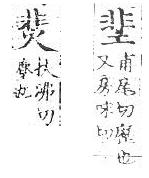 甫尾切塵也
又房味切
扶沸切
也